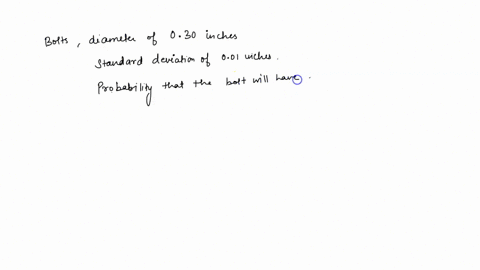 Bolts, diameter of 0.30 inches
Standard deviation of 0.01 inches.
Probability that the bolt will have.